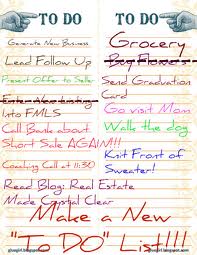 TO DO
Generate New Business
Lead Follow Up
Present Offer to Seller
Enter New Listing
Into FMLS
Call Bank about
Short Sale AGAIN!!!
Coaching Call at 11:30
Read Blog: Real Estate
Made Crystal Clear
TO DO
Grocery
Buy Flowers
Send Graduation
Card
Go visit Mom
Walk the dog
Knit Front of
Sweater!
Make a New
"To DO" List!!!!